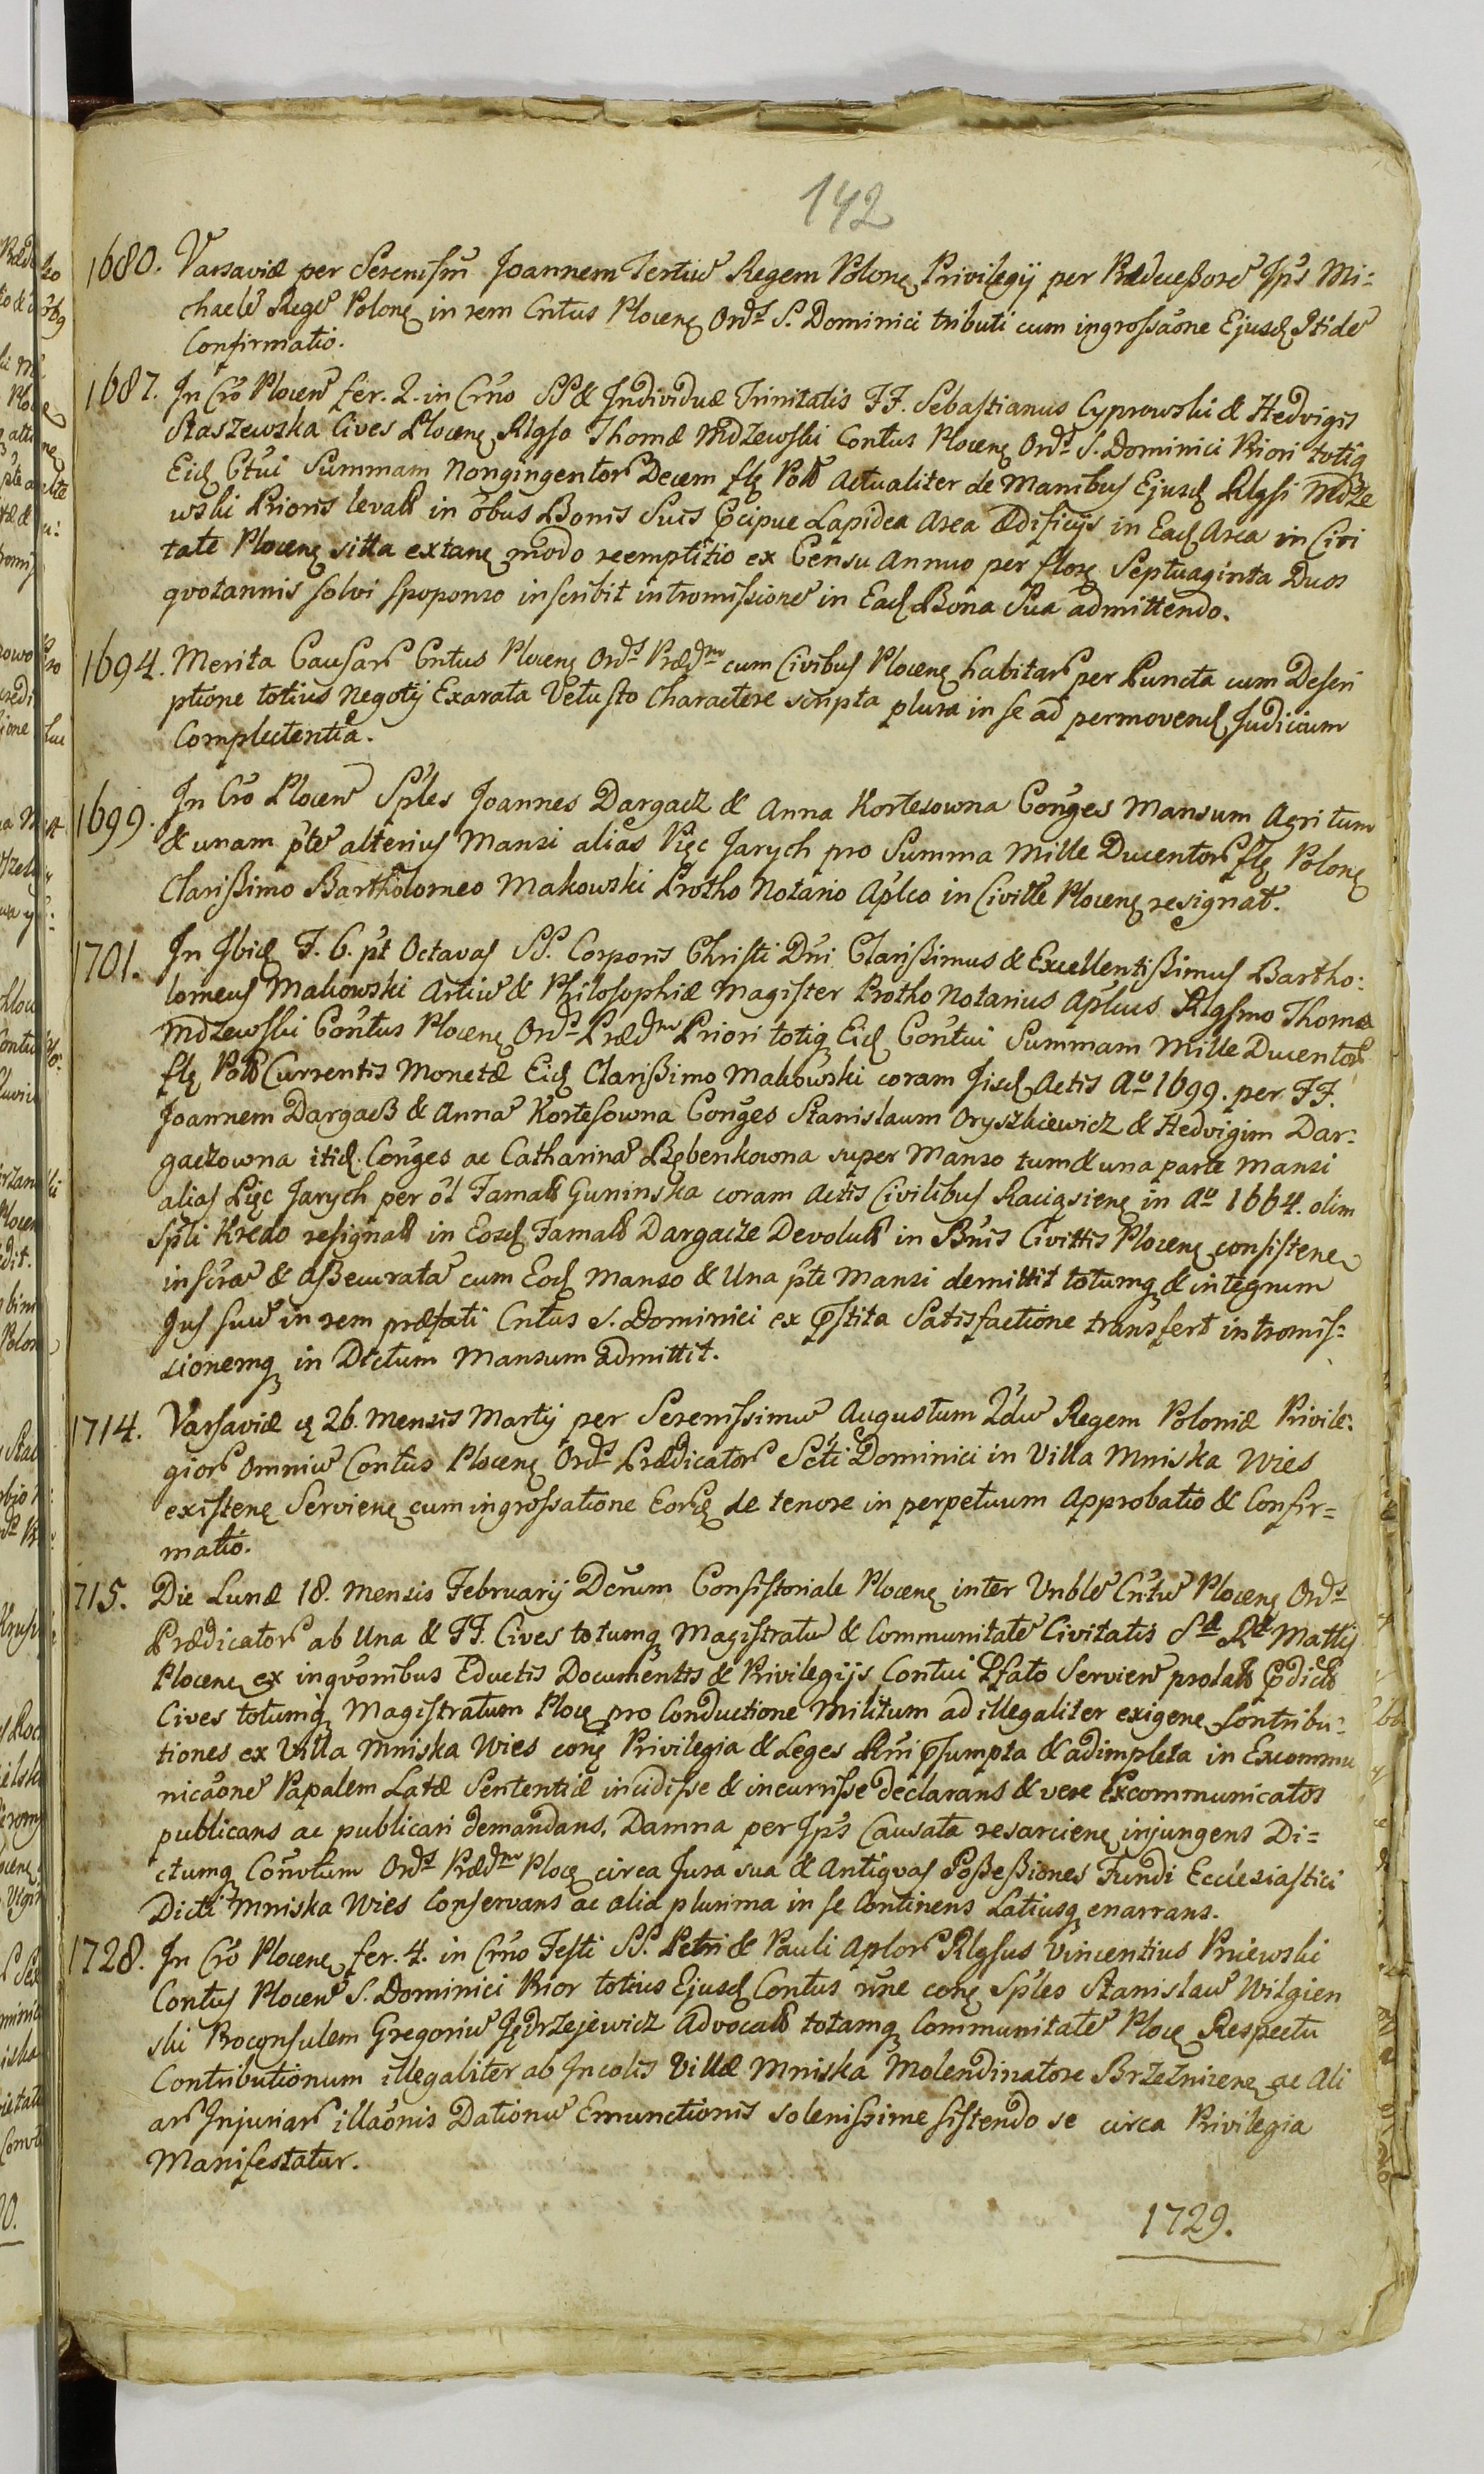 142
1680. Varsaviæ per Serenisſm̃ Joannem Tertiũ Regem Polonꝫ Privilegij per Prædeceßorẽ Jps̃ Mi-
chaelẽ Regẽ Polonꝫ in rem Cntus Plocenꝫ Ords S. Dominici tributi cum ingroſsaõne Ejusd Itidẽ
Confirmatio.
1687. In Crõ Plocen̄ fer. 2. in Crño SS & Individuæ Trinitatis FF. Sebaſtianus Cyprowski & Hedvigis
Staszewska Cives Plocenꝫ Rlgſo Thomæ Mdzewſki Contus Plocenꝫ Ords S. Dominici Priori totiq
Eid Ctui Summam Nongingentor Decem flꝫ Poll Actualiter de Manibuſ Ejusd Rlgſi Mdze
wski Prioris levatt in õbus Bonis Suis ꝓcipue Lapidea Area Ædificijs in Ead Area in Civi
tate Plocenꝫ sitta extanꝫ modo reemptitio ex Censu Annuo per florꝫ Septuaginta Duos
qvotannis ſolvi ſpoponso inſcribit intromiſsionẽ in Ead Bona Sua admittendo.
1694. Merita Cauſar Cntus Plocenꝫ Ords Prædm cum Civibuſ Plocenꝫ habitar per Puncta cum Deſcri
ptione totius Negotij Exarata Vetuſto Charactere scripta plura in ſe ad permovend Judicium
Complectentia.
1699. In Crõ Plocen̄ Sples Joannes Dargacz & Anna Kortesowna Conges Mansum Agri tum
& unam ptẽ alteriuſ Mansi alias Pięc Jarych pro Summa Mille Ducentor flꝫ Polonꝫ
Clarißimo Bartholomeo Makowski Protho Notario Aplco in Civitte Plocenꝫ resignat.
1701. In Ibid F. 6. pt Octavaſ SS. Corporis Chriſti Dni Clarißimus & Excellentißimuſ Bartho-
lomeuſ Makowski Artiũ & Philoſophiæ Magiſter Protho Notarius Aplcus Rlgſmo Thomæ
Mdzewſki Contus Plocenꝫ Ords Prædm Priori totiq Eid Contui Summam Mille Ducentor
flꝫ Poll Currentis Monetæ Eid Clarißimo Makowski coram Jisd Actis Ao 1699. per FF.
Joannem Dargacß & Annã Korteſowna Conges Stanislaum Oryszkiewicz & Hedvigim Dar-
gaczowna itid. Conges ac Catharinã Bębenkowna super Manso tum & una parte Mansi
aliaſ Pięc Jarych per ol Famatt Guninska coram Actis Civilibuſ Raciąsienꝫ in Ao 1664. olim
Spli Kredo reſignatt in Eosd Famatt Dargacze Devolutt in Bnis Civittis Plocenꝫ consiſtenꝫ
inſcrã & aßecuratã cum Eod Manso & Una pte Mansi demittit totumq & integrum
Juſ ſuũ in rem præfati Cntus S. Dominici ex ꝓſtita Satisfactione transfert intromiſ-
sionemq in Dictum Mansum admittit.
1714. Varſaviæ ꝫ 26. Mensis Martij per Sereniſsimũ Auguſtum 2dũ Regem Poloniæ Privile-
gior omniũ Contus Plocenꝫ Ords Prædicator Scti Dominici in Villa Mniska Wies
exiſtenꝫ Servienꝫ cum ingroſsatione Eorꝫ de tenore in perpetuum Approbatio & Confir-
matio.
1715. Die Lunæ 18. Mensis Februarij Dcrum Conſiſtoriale Plocenꝫ inter Vnblẽ Cntũ Plocenꝫ Ords
Prædicator ab Una & FF. Cives totumq Magiſtratũ & Communitatẽ Civitatis Sæ Ræ Mattis
Plocenꝫ ex inqvonibus Eductis Documentis & Privilegijs Contui Pfato Servien̄ prolatt ꝓdictt
Cives totumq Magiſtratum Plocꝫ pro Conductione Militum ad illegaliter exigenꝫ Contribu-
tiones ex Villa Mniska Wies conꝫ Privilegia & Leges Rni ꝓſumpta & adimpleta in Excommu
nicãonẽ Papalem Latæ Sententiæ incidiſse & incurriſse declarans & vere Excommunicatos
publicans ac publicari demandans. Damna per Jps̃ Causata resarcienꝫ injungens Di-
ctumq Convtum Ords Prædm Plocꝫ circa Jura sua & Antiqvaſ Poßeßiones Fundi Eccleſiaſtici
Dicti Mniska Wies Conſervans ac alia plurima in ſe Continens Latiusq enarrans.
1728. In Crõ Plocenꝫ fer. 4. in Crño Feſti SS. Petri & Pauli Aplor Rlgſus Vincentius Pniewski
Contuſ Plocen̄ S. Dominici Prior totius Ejusd Contus nne conꝫ Sples Stanislaũ Wilgien
ski Proconsulem Gregoriũ Jędrzejewicz Advocatt totamq Communitatẽ Plocꝫ Respectu
Contributionum illegaliter ab Incolis Villæ Mniska Molendinatore Brzeznicenꝫ ac Ali
ar Injuriar illãonis Dationũ Emunctionis soleniſsime ſiſtendo se circa Privilegia
Manifestatur.
1729.